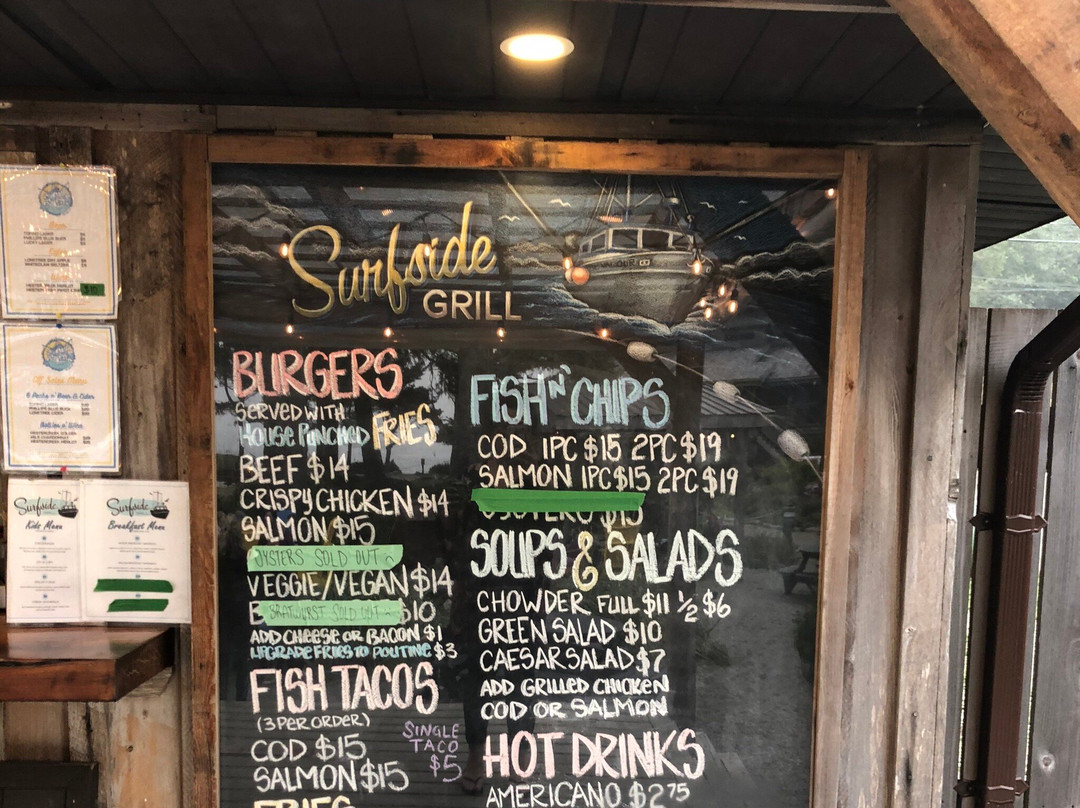 Surfside
GRILL
BURGERS
SERVED WITH
HOUSE PUNCHED FRIES
BEEF $14
CRISPY CHICKEN $14
SALMON $15
OYSTERS SOLD OUT
VEGGIE/VEGAN $14
B BRATWURST SOLD OUT $10
ADD CHEESE OR BACON $1
UPGRADE FRIES TO POUTINE $3
FISH TACOS
(3 PER ORDER)
COD $15
SALMON $15
SINGLE
TACO
$5
FRIES
FISH N' CHIPS
COD 1PC $15 2PC $19
SALMON 1PC $15 2PC $19
OYSTERS $15
SOUPS & SALADS
CHOWDER FULL $11 ½ $6
GREEN SALAD $10
CAESAR SALAD $7
ADD GRILLED CHICKEN
COD OR SALMON
HOT DRINKS
AMERICANO $2.75
Surfside
Kids Menu
Surfside
Breakfast Menu